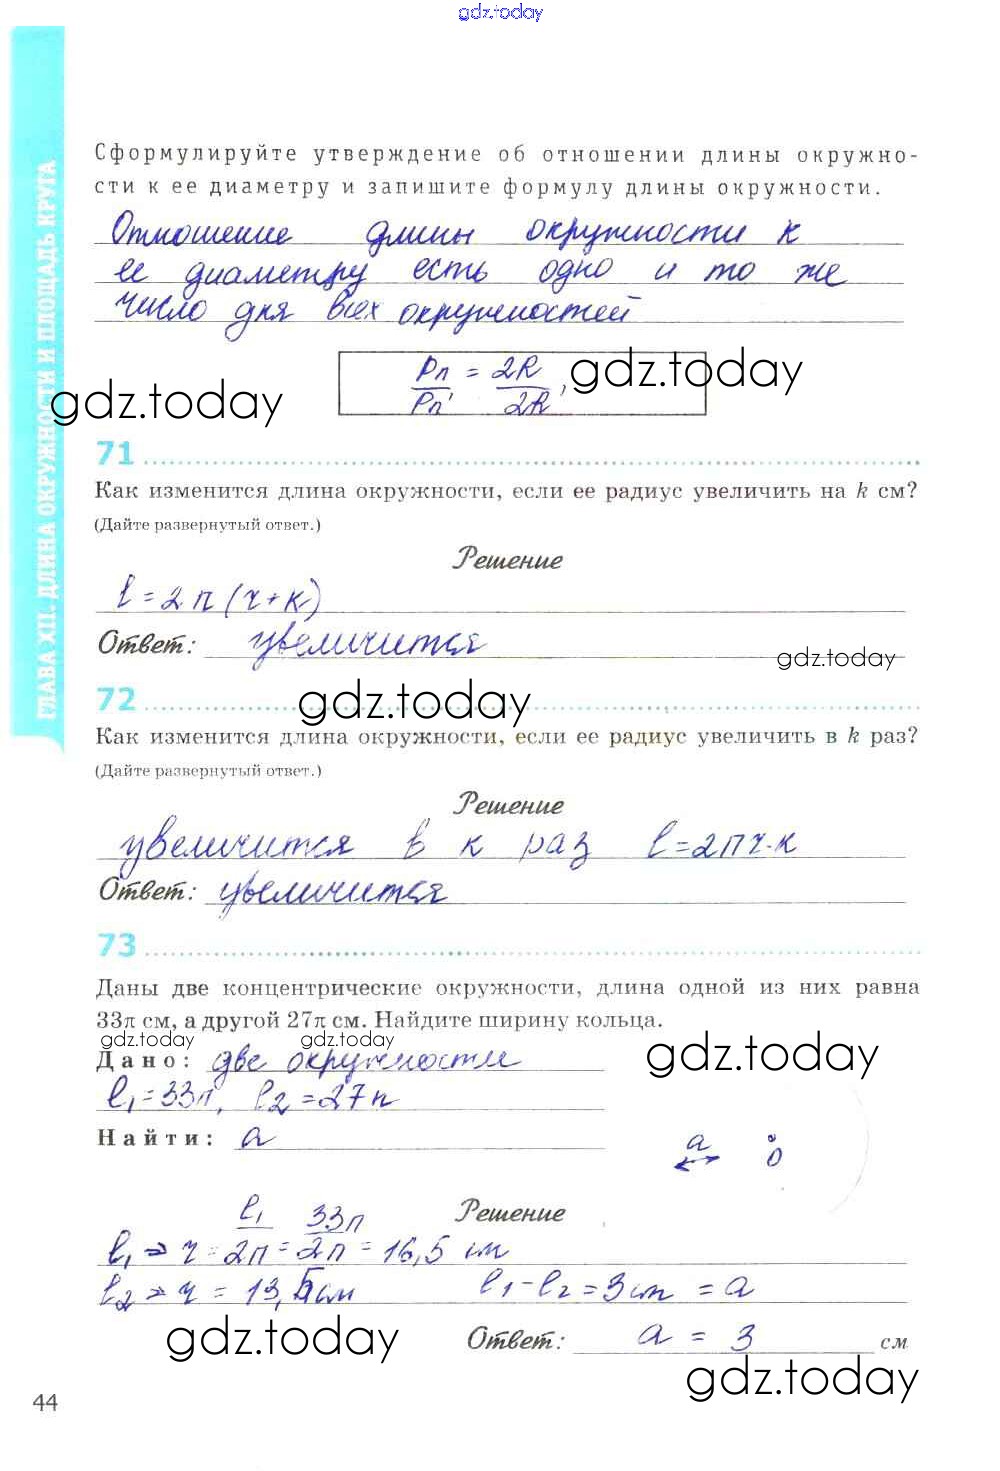 gdz.today
ГЛАВА XII. ДЛИНА ОКРУЖНОСТИ И ПЛОЩАДЬ КРУГА
Сформулируйте утверждение об отношении длины окружно-
сти к ее диаметру и запишите формулу длины окружности.
Отношение длины окружности к
ее диаметру есть одно и то же
число для всех окружностей
Pn/Pn' = 2R/2R'
gdz.today
gdz.today
71
Как изменится длина окружности, если ее радиус увеличить на k см?
(Дайте развернутый ответ.)
Решение
l = 2π(r+к)
Ответ: увеличится
gdz.today
72
gdz.today
Как изменится длина окружности, если ее радиус увеличить в k раз?
(Дайте развернутый ответ.)
Решение
увеличится в к раз l=2πr·к
Ответ: увеличится
73
Даны две концентрические окружности, длина одной из них равна
33π см, а другой 27π см. Найдите ширину кольца.
gdz.today gdz.today gdz.today
Дано: две окружности
l₁=33π, l₂=27π
Найти: a
a O
Решение
l₁ ⇒ r = l₁/2π = 33π/2π = 16,5 см
l₂ ⇒ r = 13,5 см l₁-l₂=3см = a
gdz.today
Ответ: a = 3 см
gdz.today
44